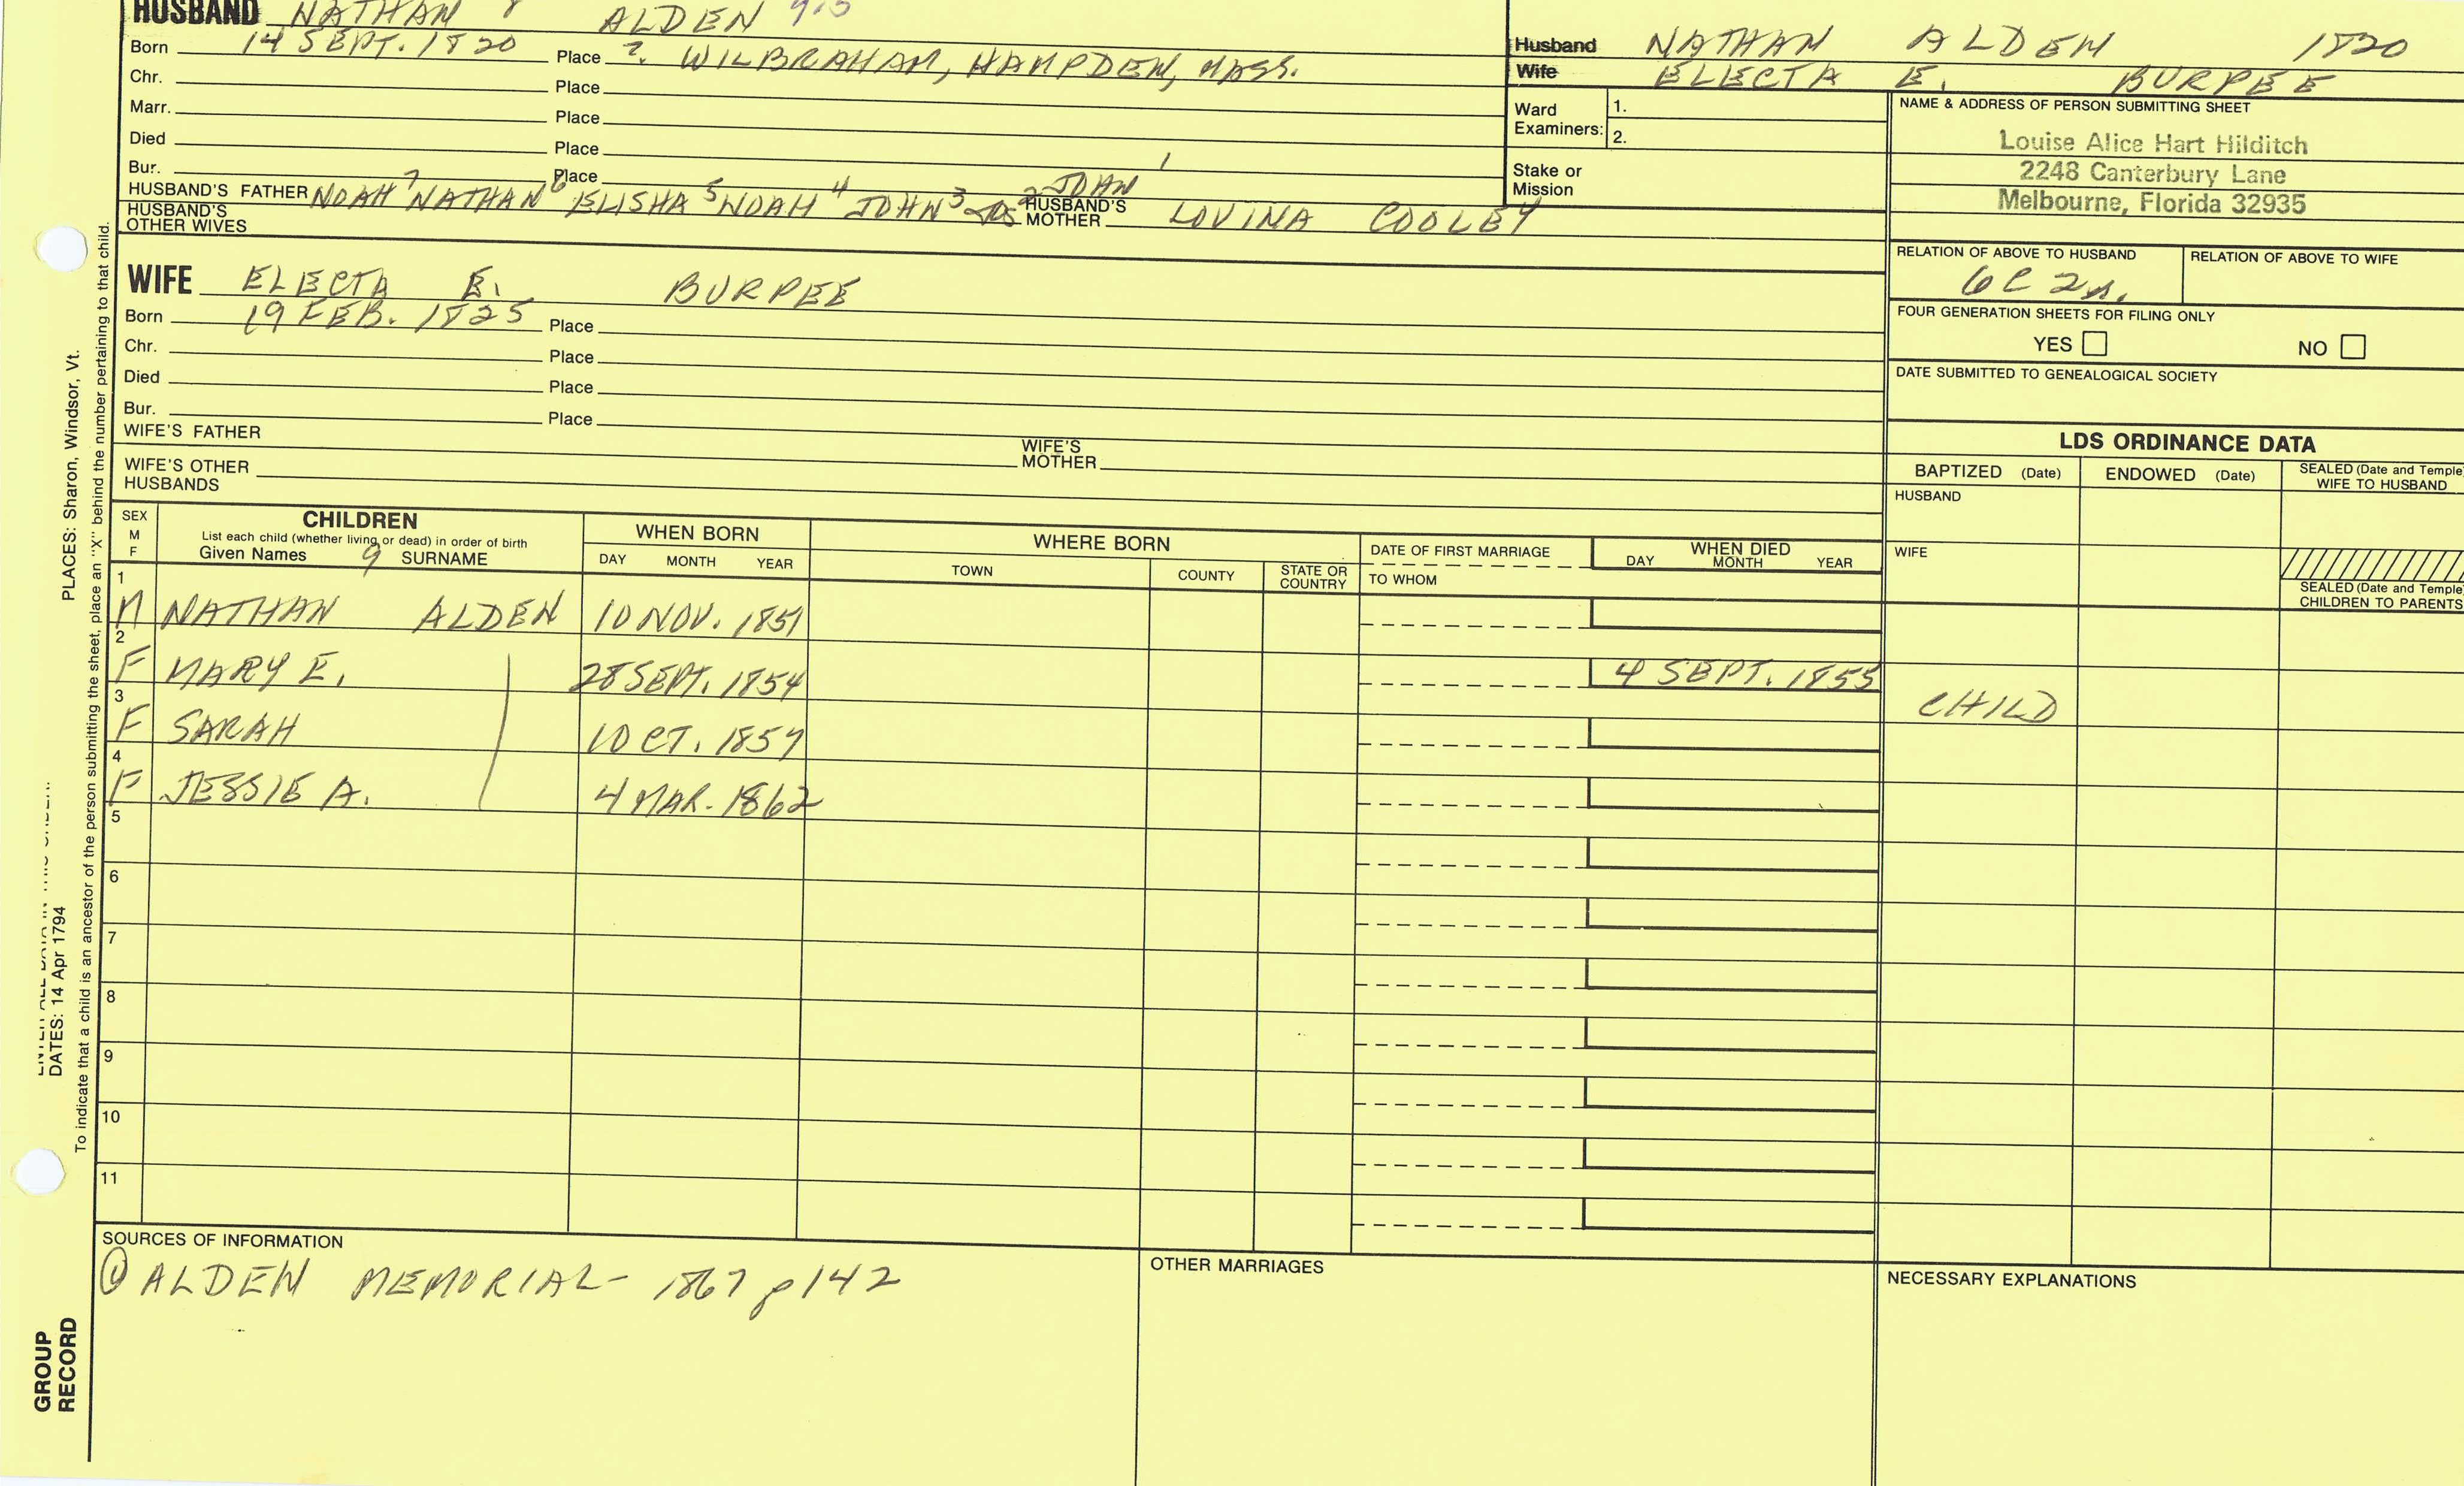 HUSBAND NATHAN 8 ALDEN
Born 14 SEPT. 1820 Place ? WILBRAHAM, HAMPDEN, MASS.
Chr. Place
Marr. Place
Died Place
Bur. Place
HUSBAND'S FATHER NOAH 7 NATHAN 6 ELISHA 5 NOAH 4 JOHN 3 JOS 2 JOHN 1 HUSBAND'S MOTHER LOVINA COOLEY
HUSBAND'S OTHER WIVES
Husband NATHAN ALDEN 1820
Wife ELECTA E. BURPEE
Ward Examiners: 1.
2.
Stake or Mission
NAME & ADDRESS OF PERSON SUBMITTING SHEET
Louise Alice Hart Hilditch
2248 Canterbury Lane
Melbourne, Florida 32935
RELATION OF ABOVE TO HUSBAND RELATION OF ABOVE TO WIFE
6C 2r.
FOUR GENERATION SHEETS FOR FILING ONLY
YES NO
DATE SUBMITTED TO GENEALOGICAL SOCIETY
WIFE ELECTA E. BURPEE
Born 19 FEB. 1825 Place
Chr. Place
Died Place
Bur. Place
WIFE'S FATHER WIFE'S MOTHER
WIFE'S OTHER HUSBANDS
LDS ORDINANCE DATA
BAPTIZED (Date) ENDOWED (Date) SEALED (Date and Temple) WIFE TO HUSBAND
HUSBAND
WIFE
SEALED (Date and Temple) CHILDREN TO PARENTS
SEX M F CHILDREN WHEN BORN WHERE BORN DATE OF FIRST MARRIAGE WHEN DIED
List each child (whether living or dead) in order of birth
Given Names 9 SURNAME DAY MONTH YEAR TOWN COUNTY STATE OR COUNTRY TO WHOM DAY MONTH YEAR
1 M NATHAN ALDEN 10 NOV. 1851
2 F MARY E. 28 SEPT. 1854 4 SEPT. 1855 CHILD
3 F SARAH 1 OCT. 1857
4 F JESSIE A. 4 MAR. 1862
5
6
7
8
9
10
11
SOURCES OF INFORMATION
① ALDEN MEMORIAL - 1867 p142
OTHER MARRIAGES
NECESSARY EXPLANATIONS
GROUP RECORD
DATES: 14 Apr 1794 PLACES: Sharon, Windsor, Vt.
To indicate that a child is an ancestor of the person submitting the sheet, place an "X" behind the number pertaining to that child.